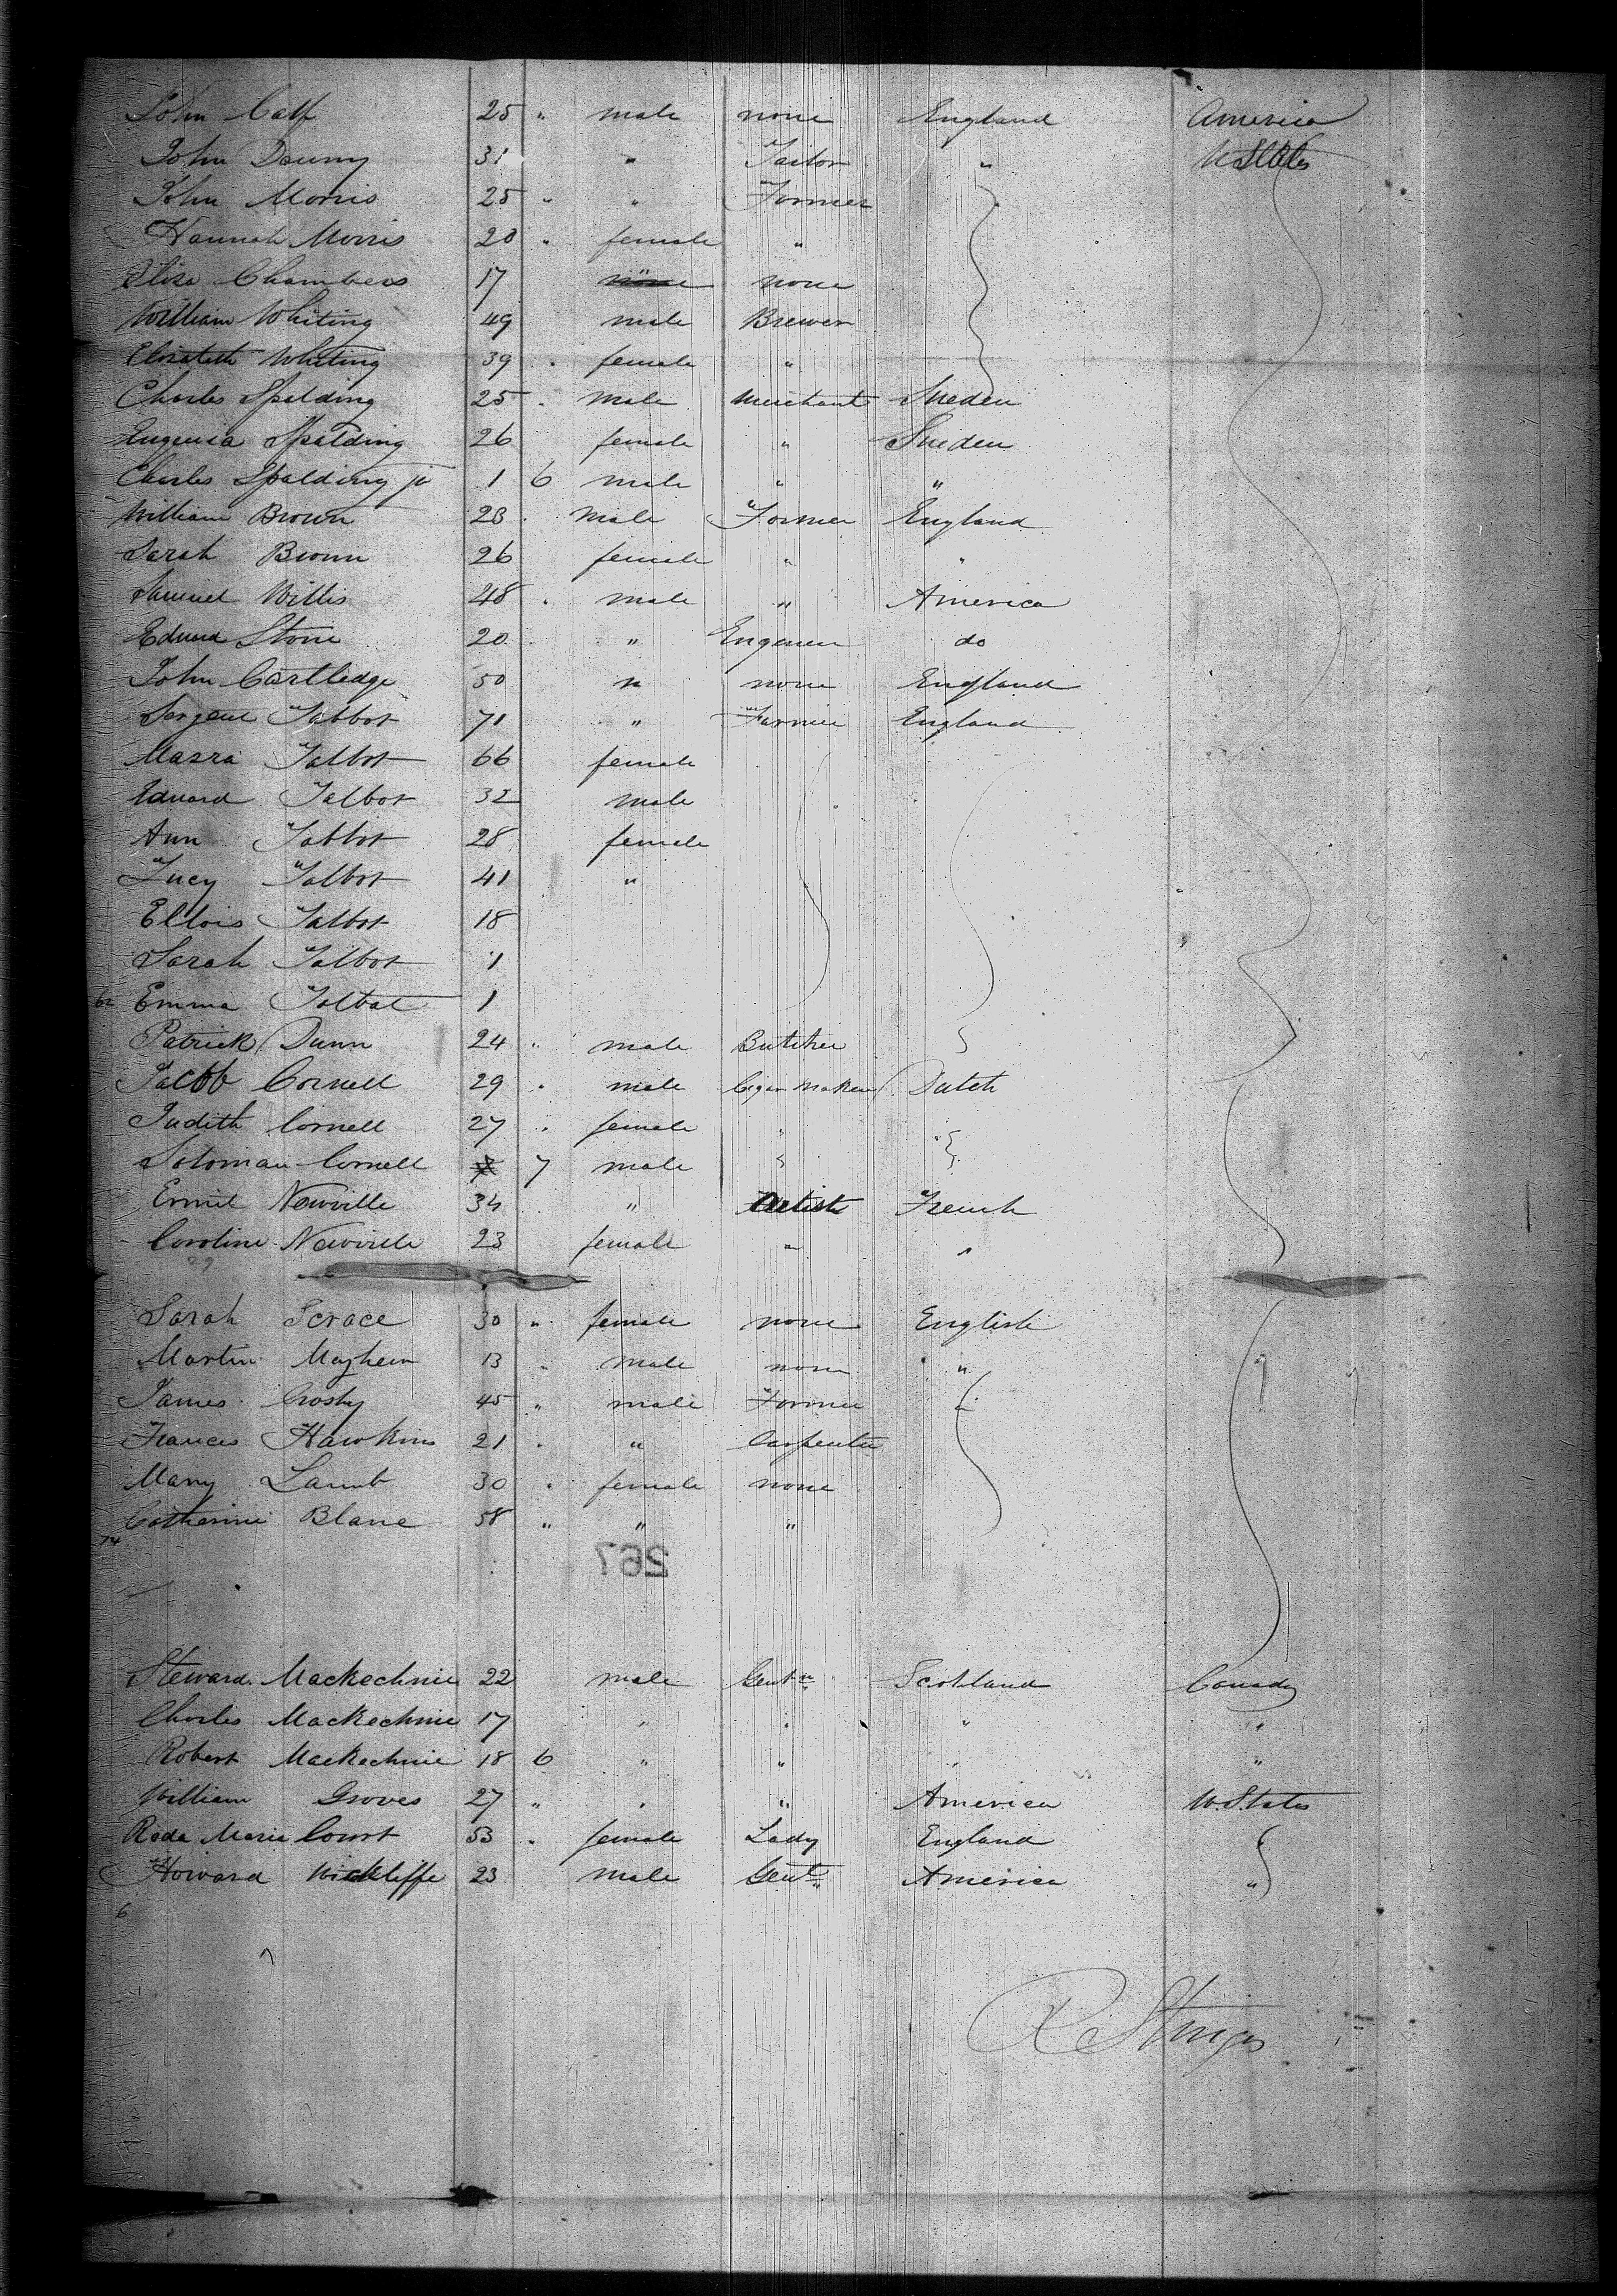 John Calf 25 " male none England America
John Downy 31 " Tailor " U States
John Morris 25 " " Farmer
Hannah Morris 20 " female "
Eliza Chambers 17 none
William Whiting 49 male Brewer
Elizabeth Whiting 39 " female "
Charles Spalding 25 " Male Merchant Sweden
Eugenia Spalding 26 female " Sweden
Charles Spalding jr 1 6 male " "
William Brown 28 Male Farmer England
Sarah Brown 26 female " "
Samuel Willis 48 " male " America
Edward Stone 20 " Engeneer do
John Cartledge 50 " none England
Sergent Talbot 71 " Farmer England
Talbot 66 female
Edward Talbot 32 male
Ann Talbot 28 female
Lucy Talbot 41 "
Ellois Talbot 18
Sarah Talbot 1
62 Emma Talbot 1
Patrick Dunn 24 " male Butcher
Jacob Cornell 29 " male Cigar Maker Dutch
Judith Cornell 27 " female "
Soloman Cornell 7 male
Ermil Newville 34 " Artist French
Caroline Newville 23 female " "
29
Sarah Scrace 30 " female none English
Martin Mayhew 13 " male none "
James Crosby 45 " male Farmer
Frances Hawkins 21 " " Carpenter
Mary Lamb 30 " female none
Catherine Blane 58 " " "
14
267
Steward Mackechnie 22 male Gentn Scotland Canada
Charles Mackechnie 17 " " " "
Robert Mackechnie 18 6 " " " "
William Groves 27 " " " America U. States
Roda Maria Court 53 " female Lady England
Howard Wickliffe 23 male Gentn America "
6
R Sturges